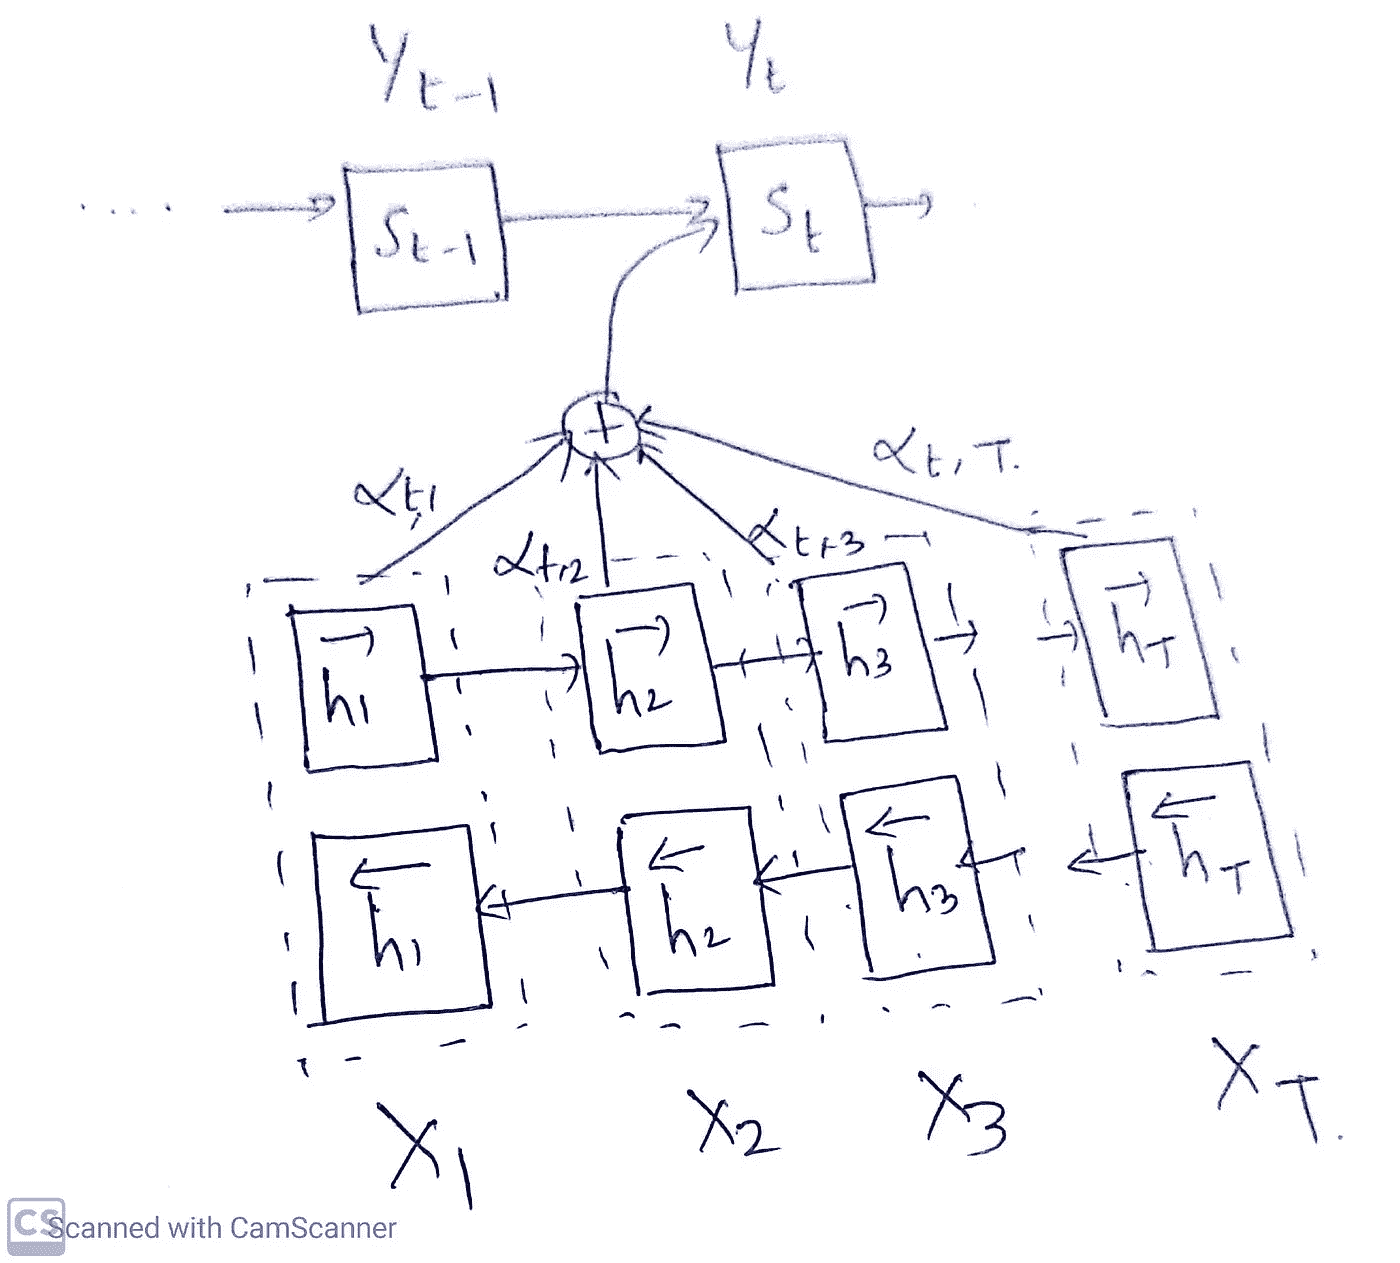 Y t-1 Y t
.... S t-1 S t
+
α t,1 α t,2 α t,3 α t,T.
→h 1 →h 2 →h 3 →h T
←h 1 ←h 2 ←h 3 ←h T
X 1 X 2 X 3 X T.
CS Scanned with CamScanner